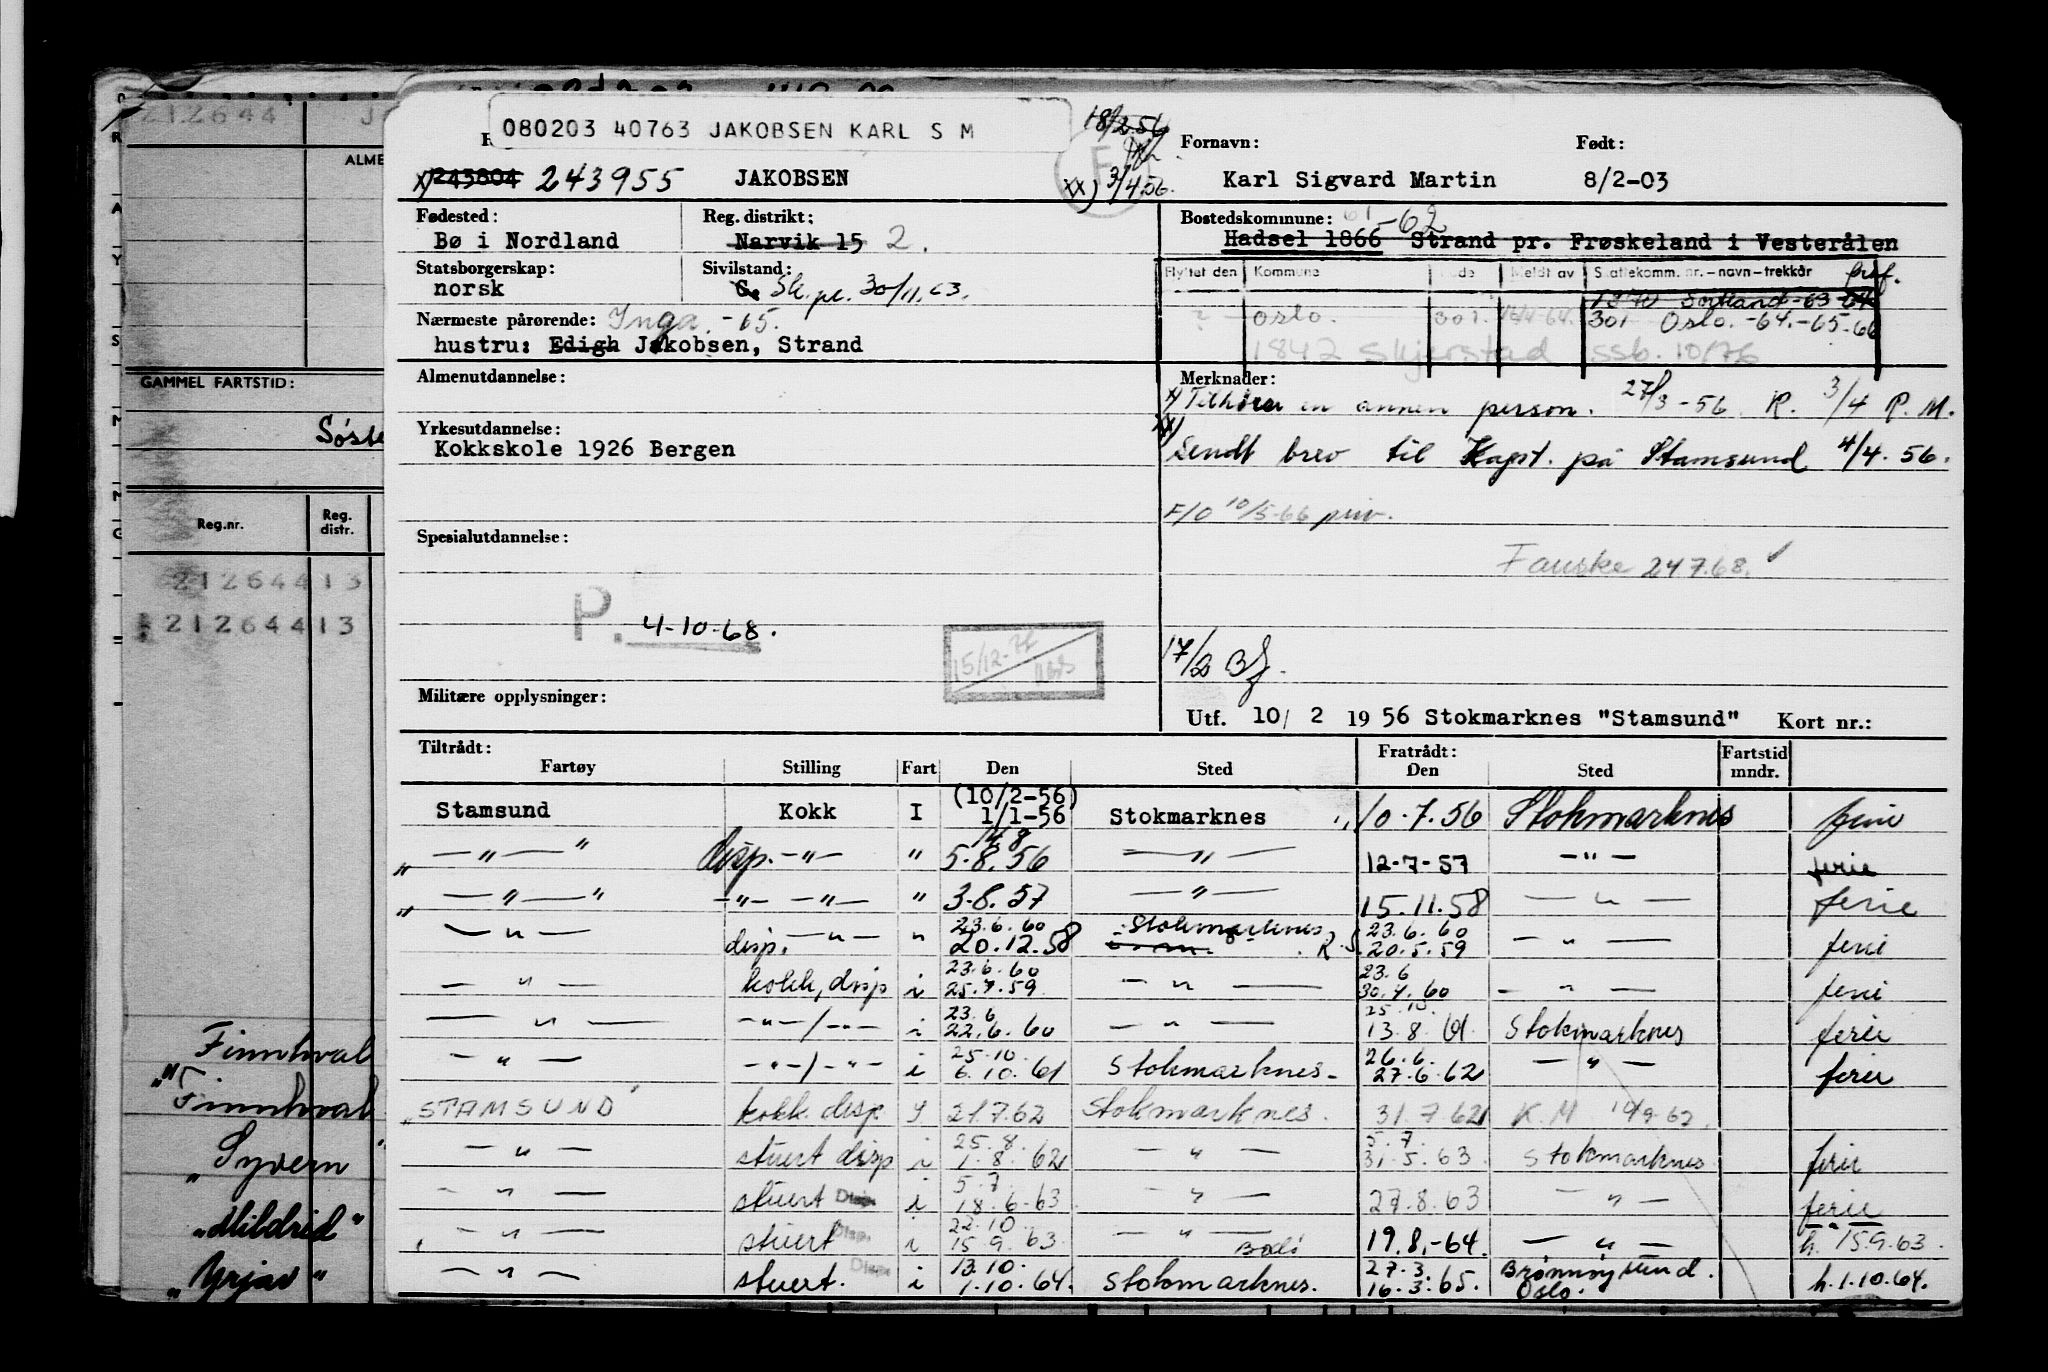 212644
ALME
GAMMEL FARTSTID:
Søste
Reg.nr. Reg. distr.
212644 13
212644 13
Finnhval
"Finnhval
"Syvern"
"Mildrid"
"Yrjar"
080203 40763 JAKOBSEN KARL S M
18/2.56
x) 243804 243955 JAKOBSEN xx) 3/4 56.
Fornavn: Født:
Karl Sigvard Martin 8/2-03
Fødested: Reg. distrikt:
Bø i Nordland Narvik 15 2.
Statsborgerskap: Sivilstand:
norsk G. Sk. pr. 30/11.63.
Nærmeste pårørende: Inga -65.
hustru: Edigh Jakobsen, Strand
Bostedskommune: 61 -62
Hadsel 1866 Strand pr. Frøskeland i Vesterålen
Flyttet den Kommune Kode Meldt av Skattekomm. nr. - navn - trekkår
1870 Sortland -63 -64
? Oslo. 301. 301 Oslo. -64.-65-66
1842 Skjerstad SSB. 10/76
Almenutdannelse:
Yrkesutdannelse:
Kokkskole 1926 Bergen
Spesialutdannelse:
P. 4-10-68.
15/12-72
Militære opplysninger:
Merknader:
x) Tilhører en annen person. 27/3-56 R. 3/4 R. M.
xx) Sendt brev til Kapt. på Stamsund 4/4.56.
F/O 10/5-66 priv.
Fauske 24 7.68. ✓
17/2
Utf. 10/ 2 19 56 Stokmarknes "Stamsund" Kort nr.:
Tiltrådt: Fratrådt: Fartstid
Fartøy Stilling Fart Den Sted Den Sted mndr.
(10/2-56)
Stamsund Kokk I 1/1-56 Stokmarknes 10.7.56 Stokmarknes ferie
" —"— " disp. -"- " 5.8.56 —"— 12-7-57 -"- ferie
" —"— " -"- -"- " 3.8.57 —"— 15.11.58 —"— ferie
23.6.60 Stokmarknes 23.6.60
—"— disp. —"— " 20.12.58 R.S. 20.5.59 —"— ferie
23.6.60 23.6
—"— kokk, disp i 25.7.59 —"— 30.4.60 —"— ferie
23.6 25.10.
—"— -"-/-"- i 22.6.60 —"— 13.8.61 Stokmarknes ferie
25.10 26.6.
—"— -"-/-"- i 6.10.61 Stokmarknes- 27.6.62 —"— ferie
"STAMSUND" kokk. disp. I 21.7.62 Stokmarknes. 31.7.62 K.M 10/9.62
25.8. 5.7.
—"— stuert disp i 1.8.62 —"— 31.5.63 Stokmarknes ferie
5.7.
—"— stuert Disp. i 18.6-63 —"— 27.8.63 —"— ferie
22.10
—"— stuert Disp. i 15.9.63 —"— 19.8.-64. —"— h. 15.9.63.
13.10. Bodø 27.3. Brønnøysund.
—"— stuert. Disp. i 1.10.64. Stokmarknes. 16.3.65. Oslo. h.1.10.64.